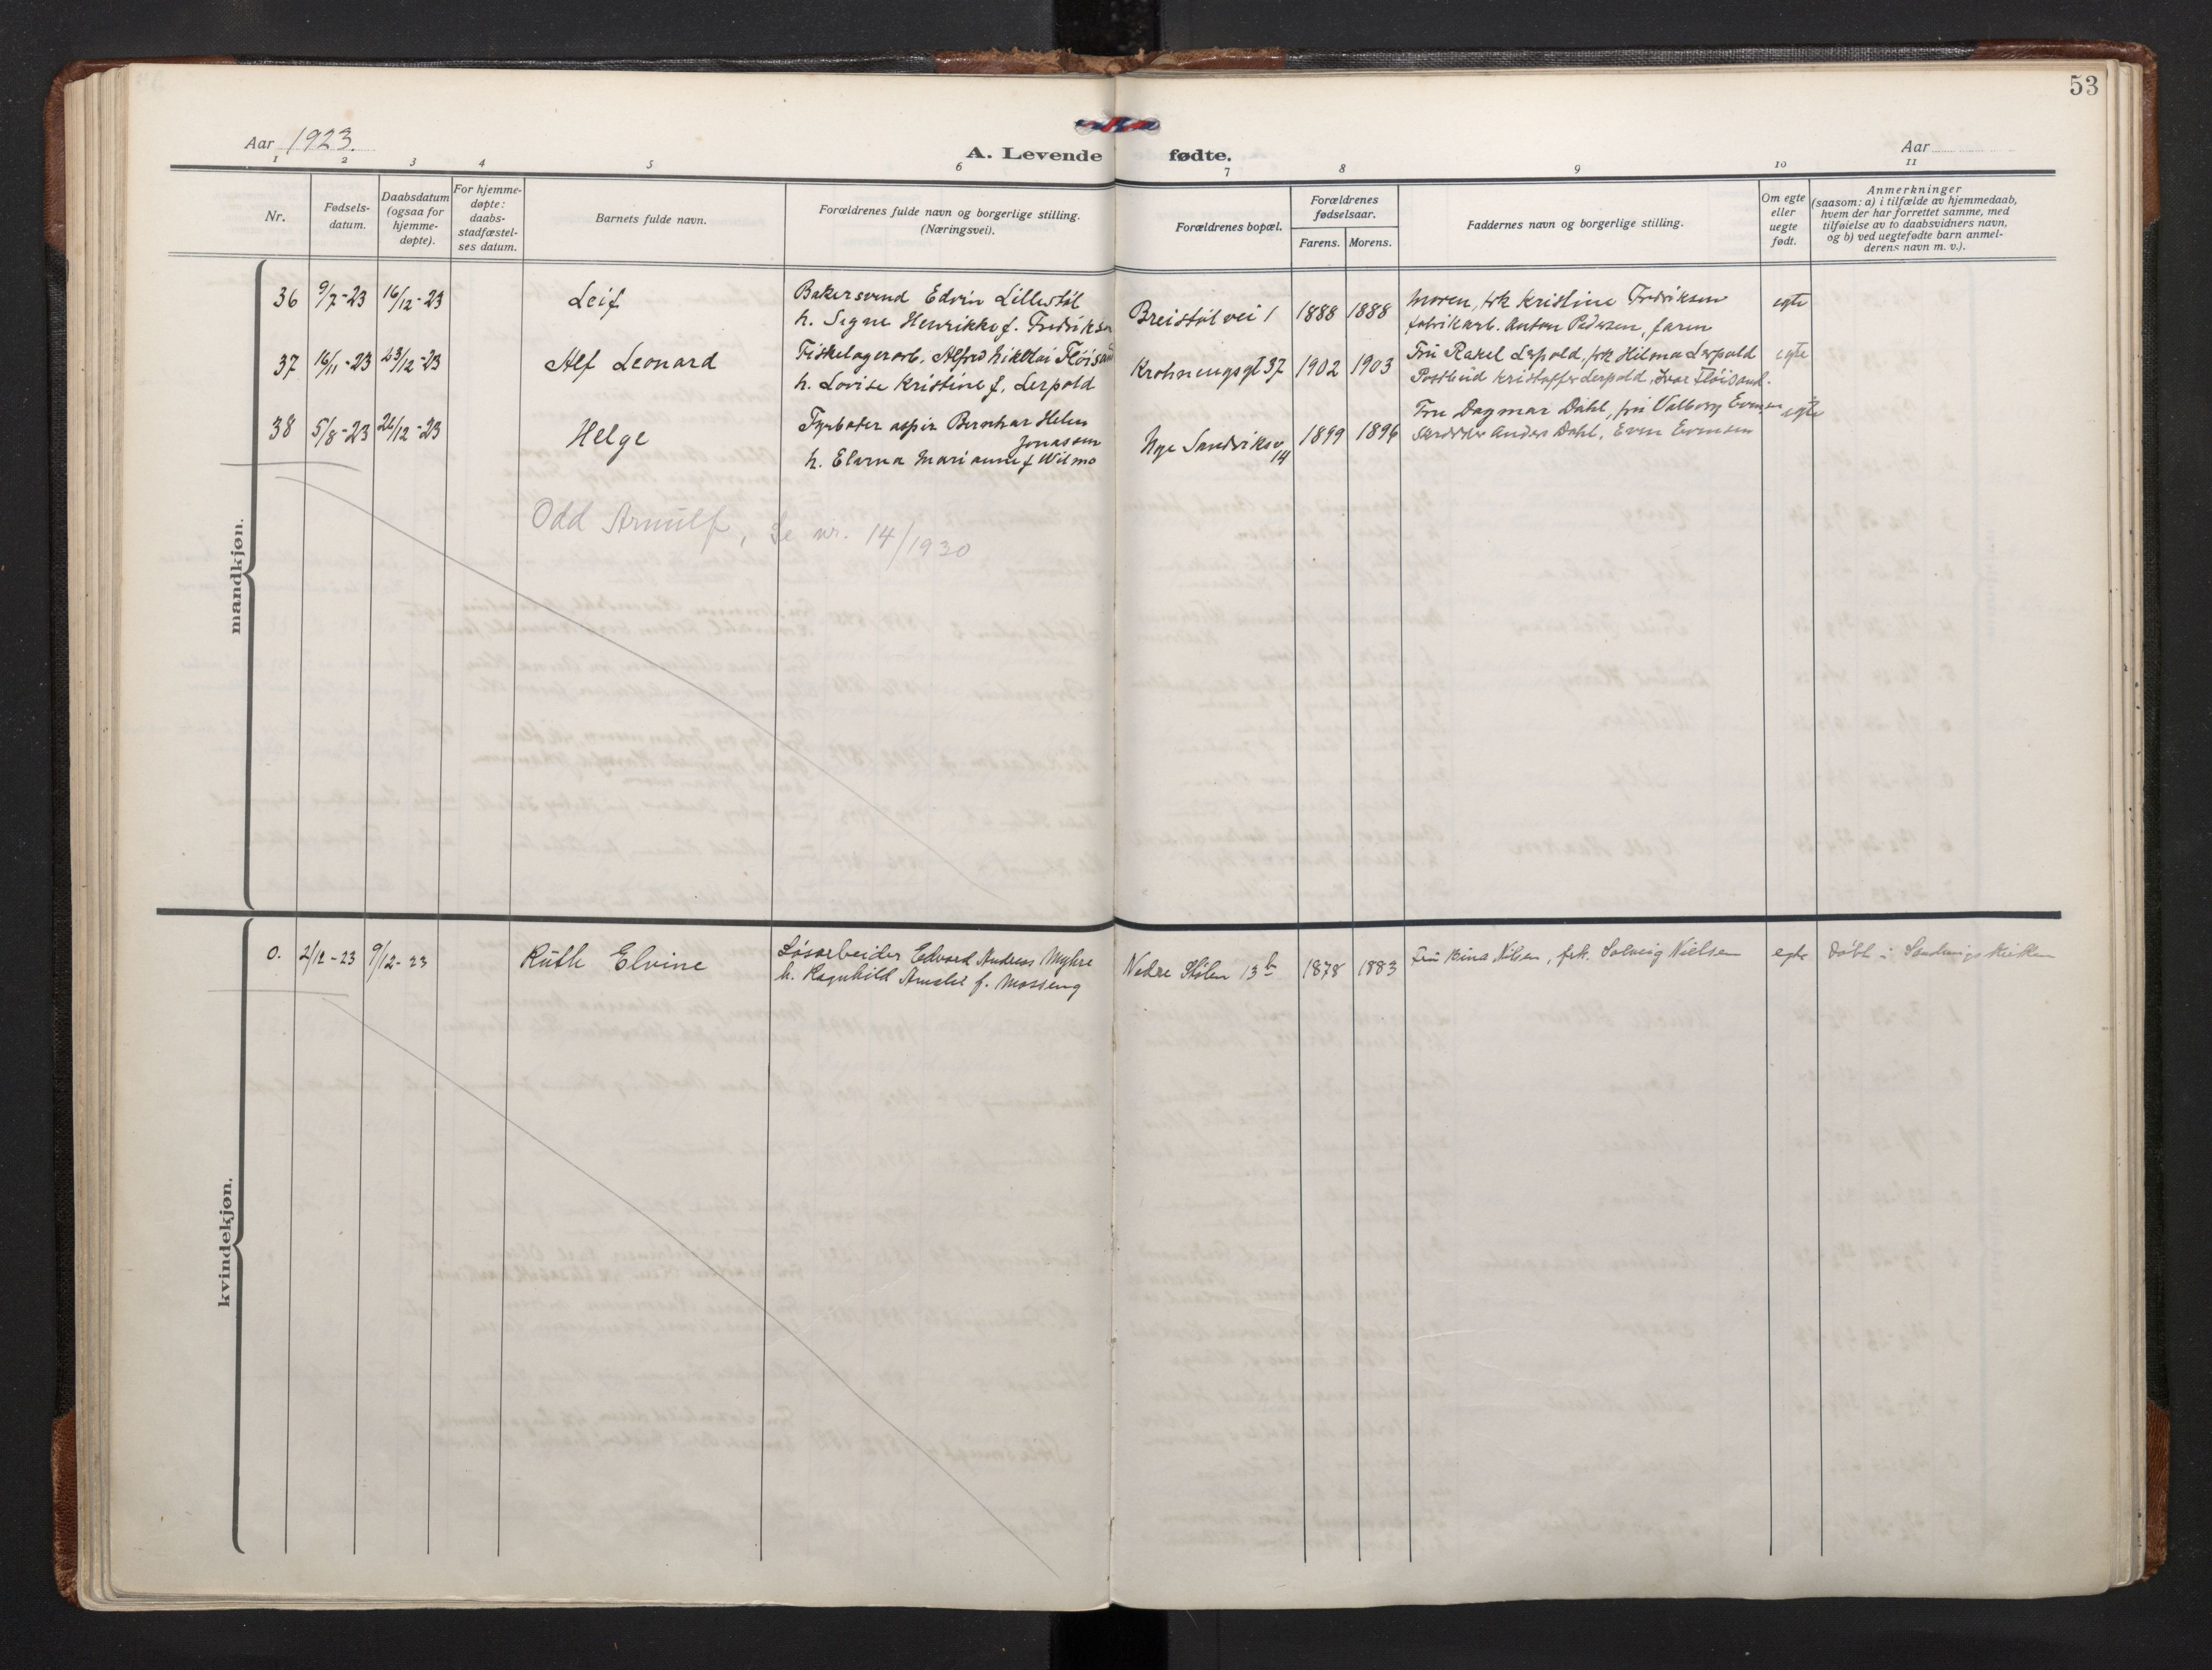 53
Aar 1923.
A. Levende fødte.
Aar
1 2 3 4 5 6 7 8 9 10 11
Nr.
Fødsels-
datum.
Daabsdatum
(ogsaa for
hjemme-
døpte).
For hjemme-
døpte:
daabs-
stadfæstel-
ses datum.
Barnets fulde navn.
Forældrenes fulde navn og borgerlige stilling.
(Næringsvei).
Forældrenes bopæl.
Forældrenes
fødselsaar.
Farens. Morens.
Faddernes navn og borgerlige stilling.
Om egte
eller
uegte
født.
Anmerkninger
(saasom: a) i tilfælde av hjemmedaab,
hvem der har forrettet samme, med
tilføielse av to daabsvidners navn,
og b) ved uegtefødte barn anmel-
derens navn m. v.).
mandkjøn.
36 9/7-23 16/12-23 Leif
Bakersvend Edvin Lillestøl
h. Signe Henrikke f. Fredriksen
Breistølvei 1 1888 1888
Moren, frk Kristine Fredriksen
fabrikarb. Anton Pedersen, faren
egte
37 16/11-23 23/12-23 Alf Leonard
Fiskelagerarb. Alfred Nikolai Fløisand
h. Lovise Kristine f. Lerpold
Krohnengsgt 37 1902 1903
Fru Rakel Lerpold, frk Hilma Lerpold
Postbud Kristoffer Lerpold, Ivar Fløisand.
egte
38 5/8-23 26/12-23 Helge
Fyrbøter aspir. Bernhar Helm
Jonassen
h. Elarna Marianne f Wilmo
Nye Sandviksv
14
1899 1896
Fru Dagmar Dahl, fru Valborg Evensen
Skrædder Anders Dahl, Even Evensen
egte
Odd Arnulf, Se nr. 14/1930
kvindekjøn.
0. 2/12-23 9/12-23 Ruth Elvine
Løsarbeider Edvard Andreas Myhre
h. Ragnhild Amalie f. Mosseng
Nedre Stølen 13 b 1878 1883
Fru Bina Nilsen, frk. Solveig Nielsen
egte
Døbt i Sandvigskirken